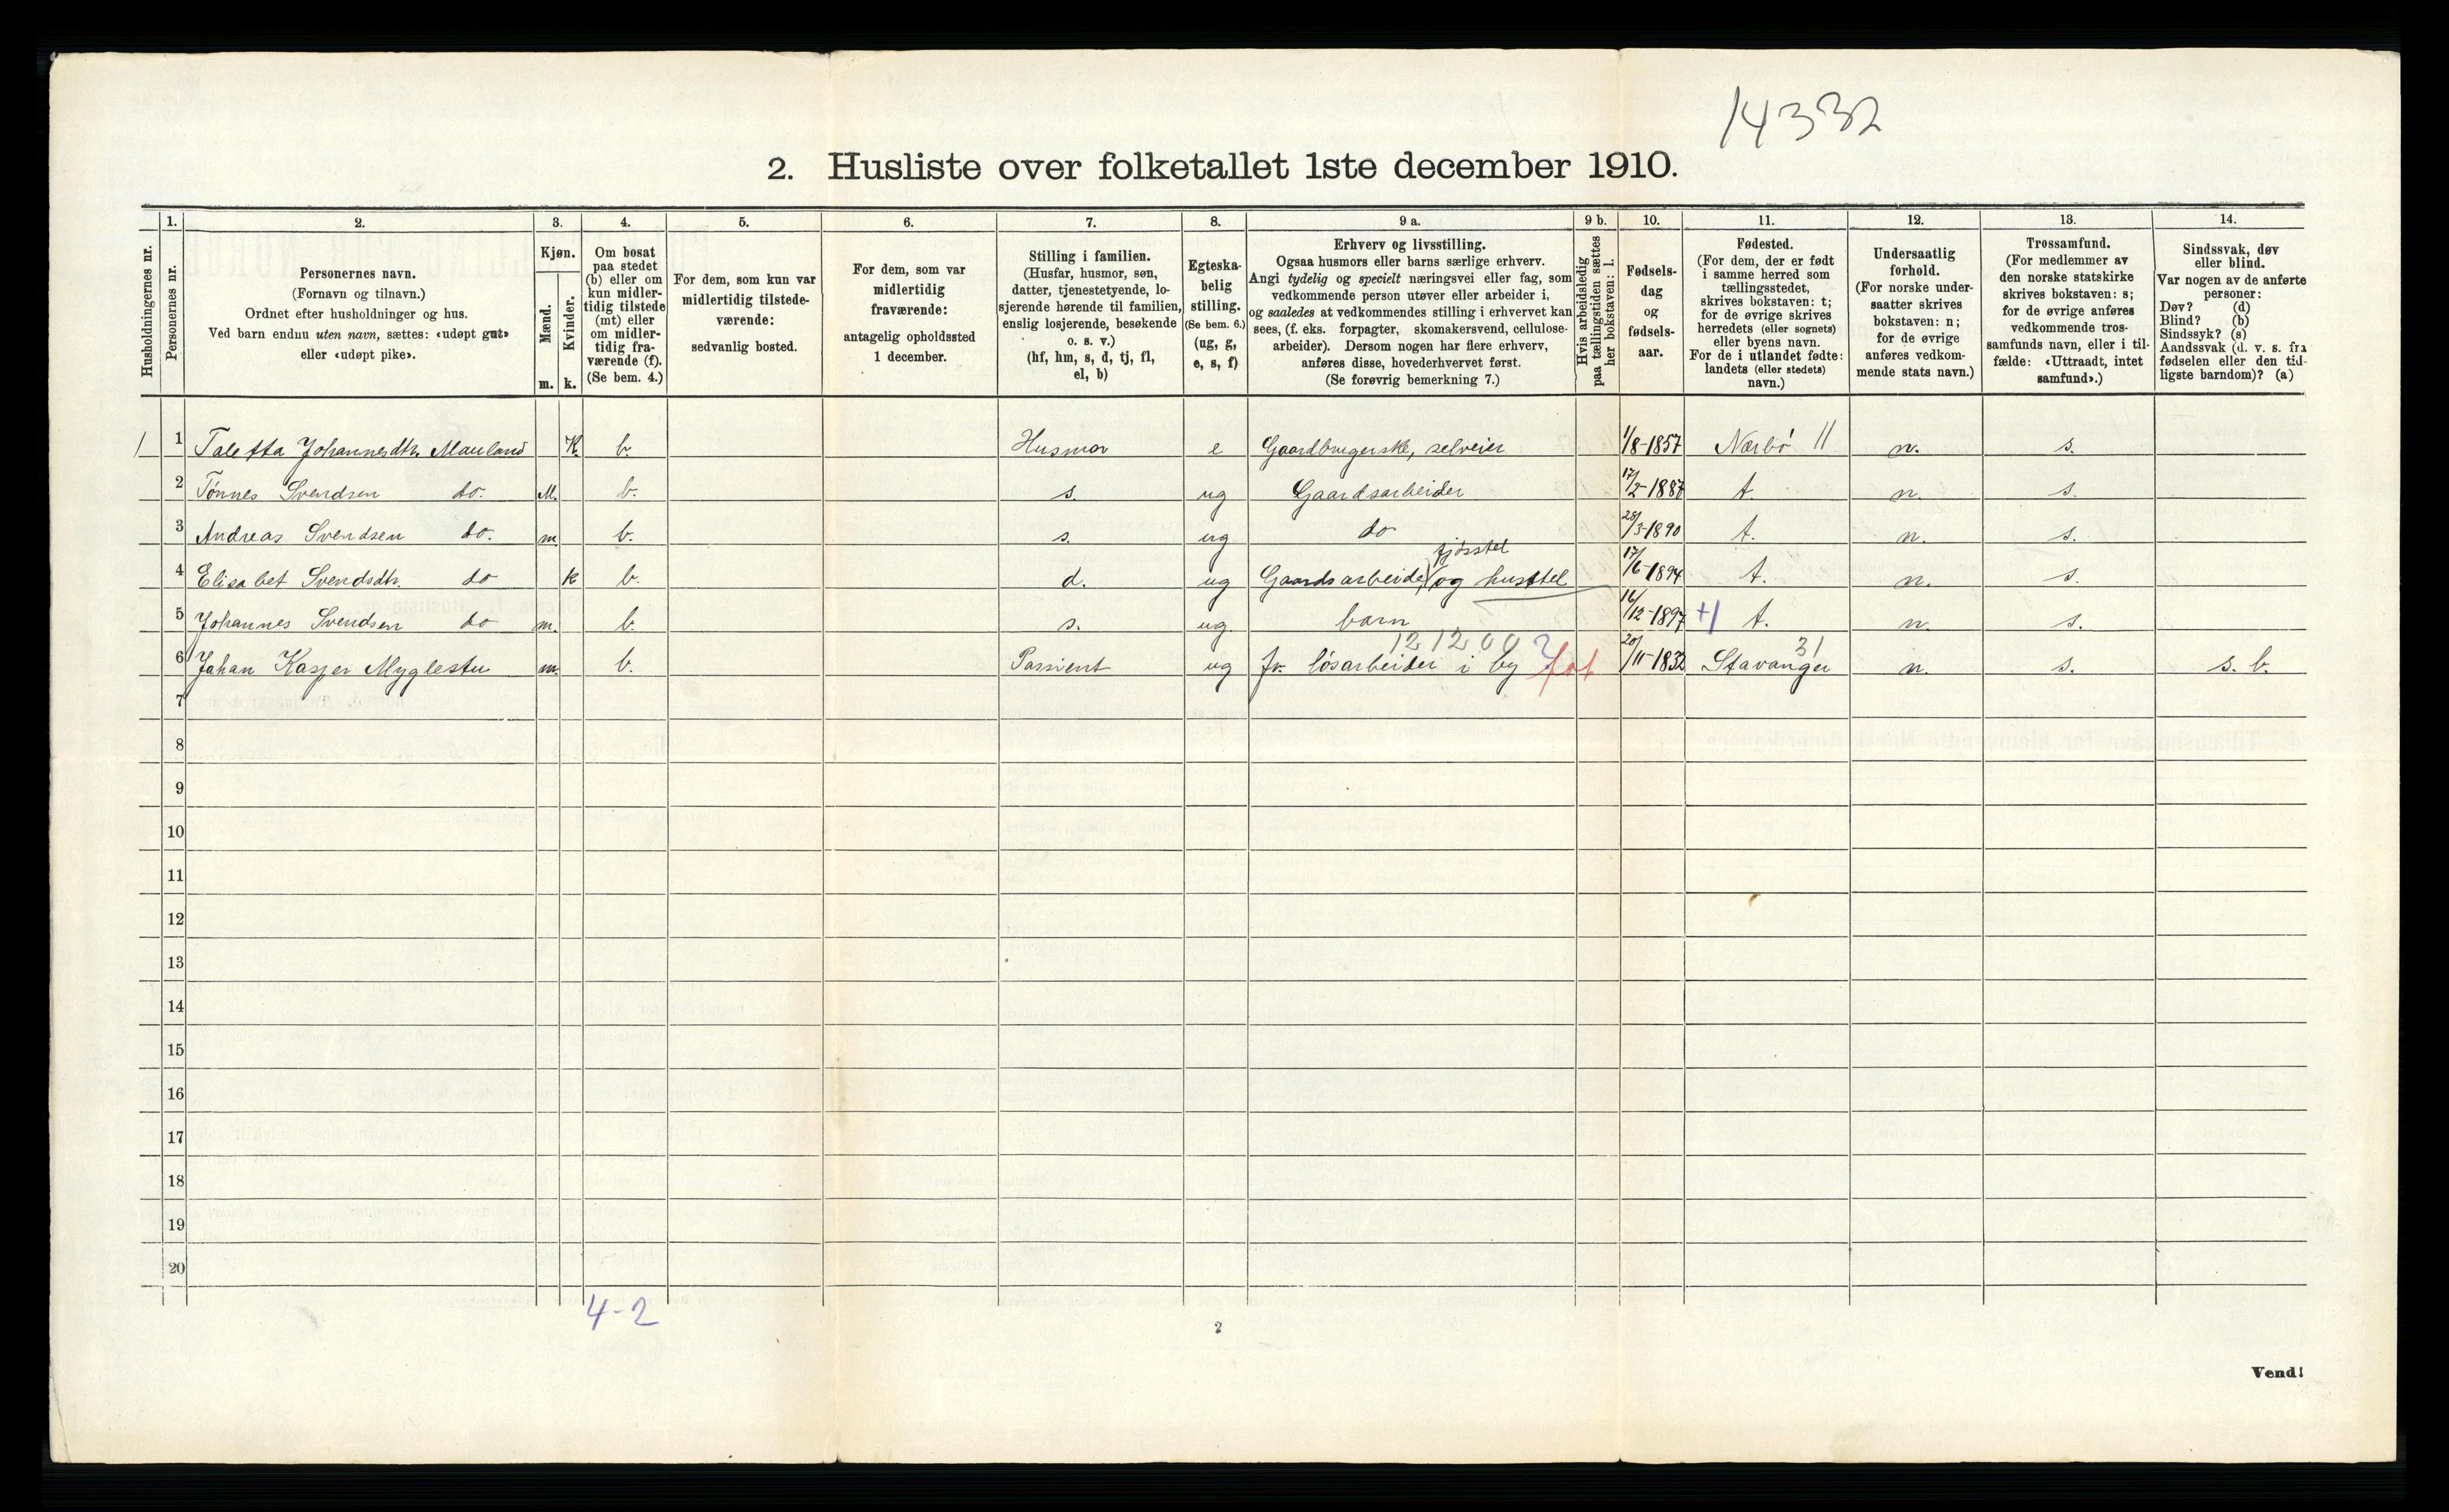 14332
2. Husliste over folketallet 1ste december 1910.
Husholdningernes nr.
1.
Personernes nr.
2.
Personernes navn.
(Fornavn og tilnavn.)
Ordnet efter husholdninger og hus.
Ved barn endnu uten navn, sættes: «udøpt gut»
eller «udøpt pike».
3.
Kjøn.
Mænd.
m.
Kvinder.
k.
4.
Om bosat
paa stedet
(b) eller om
kun midler-
tidig tilstede
(mt) eller
om midler-
tidig fra-
værende (f).
(Se bem. 4.)
5.
For dem, som kun var
midlertidig tilstede-
værende:
sedvanlig bosted.
6.
For dem, som var
midlertidig
fraværende:
antagelig opholdssted
1 december.
7.
Stilling i familien.
(Husfar, husmor, søn,
datter, tjenestetyende, lo-
sjerende hørende til familien,
enslig losjerende, besøkende
o. s. v.)
(hf, hm, s, d, tj, fl,
el, b)
8.
Egteska-
belig
stilling.
(Se bem. 6.)
(ug, g,
e, s, f)
9 a.
Erhverv og livsstilling.
Ogsaa husmors eller barns særlige erhverv.
Angi tydelig og specielt næringsvei eller fag, som
vedkommende person utøver eller arbeider i,
og saaledes at vedkommendes stilling i erhvervet kan
sees, (f. eks. forpagter, skomakersvend, cellulose-
arbeider). Dersom nogen har flere erhverv,
anføres disse, hovederhvervet først.
(Se forøvrig bemerkning 7.)
9 b.
Hvis arbeidsledig
paa tællingstiden sættes
her bokstaven: l.
10.
Fødsels-
dag
og
fødsels-
aar.
11.
Fødested.
(For dem, der er født
i samme herred som
tællingsstedet,
skrives bokstaven: t;
for de øvrige skrives
herredets (eller sognets)
eller byens navn.
For de i utlandet fødte:
landets (eller stedets)
navn.)
12.
Undersaatlig
forhold.
(For norske under-
saatter skrives
bokstaven: n;
for de øvrige
anføres vedkom-
mende stats navn.)
13.
Trossamfund.
(For medlemmer av
den norske statskirke
skrives bokstaven: s;
for de øvrige anføres
vedkommende tros-
samfunds navn, eller i til-
fælde: «Uttraadt, intet
samfund».)
14.
Sindssvak, døv
eller blind.
Var nogen av de anførte
personer:
Døv? (d)
Blind? (b)
Sindssyk? (s)
Aandssvak (d. v. s. fra
fødselen eller den tid-
ligste barndom)? (a)
1 1 Taletta Johannesdtr. Mauland K. b. Husmor e Gaardbrugerske, selveier 1/8-1857 Nærbø 11 n. s.
2 Tönnes Svendsen do. M. b. s. ug Gaardsarbeider 17/2-1887 t. n. s.
3 Andreas Svendsen do. m. b. s. ug do 28/3-1890 t. n. s.
4 Elisabet Svendsdtr. do k b. d. ug Gaardsarbeide, fjösstel og husstel 17/6-1894 t. n. s.
5 Johannes Svendsen do m. b. s. ug. barn 16/12-1897 +1 t. n. s.
121200 ? 31
6 Johan Kasper Myglestu m. b. Passient ug fr. lösarbeider i by fot 20/11-1832 Stavanger n. s. s. b.
7
8
9
10
11
12
13
14
15
16
17
18
19
20
4-2
2
Vend!